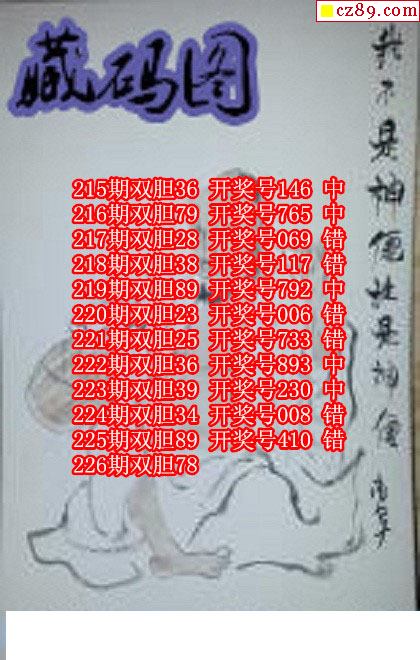 cz89.com
藏码图
215期双胆36 开奖号146 中
216期双胆79 开奖号765 中
217期双胆28 开奖号069 错
218期双胆38 开奖号117 错
219期双胆89 开奖号792 中
220期双胆23 开奖号006 错
221期双胆25 开奖号733 错
222期双胆36 开奖号893 中
223期双胆39 开奖号230 中
224期双胆34 开奖号008 错
225期双胆89 开奖号410 错
226期双胆78
我不是神但比是神